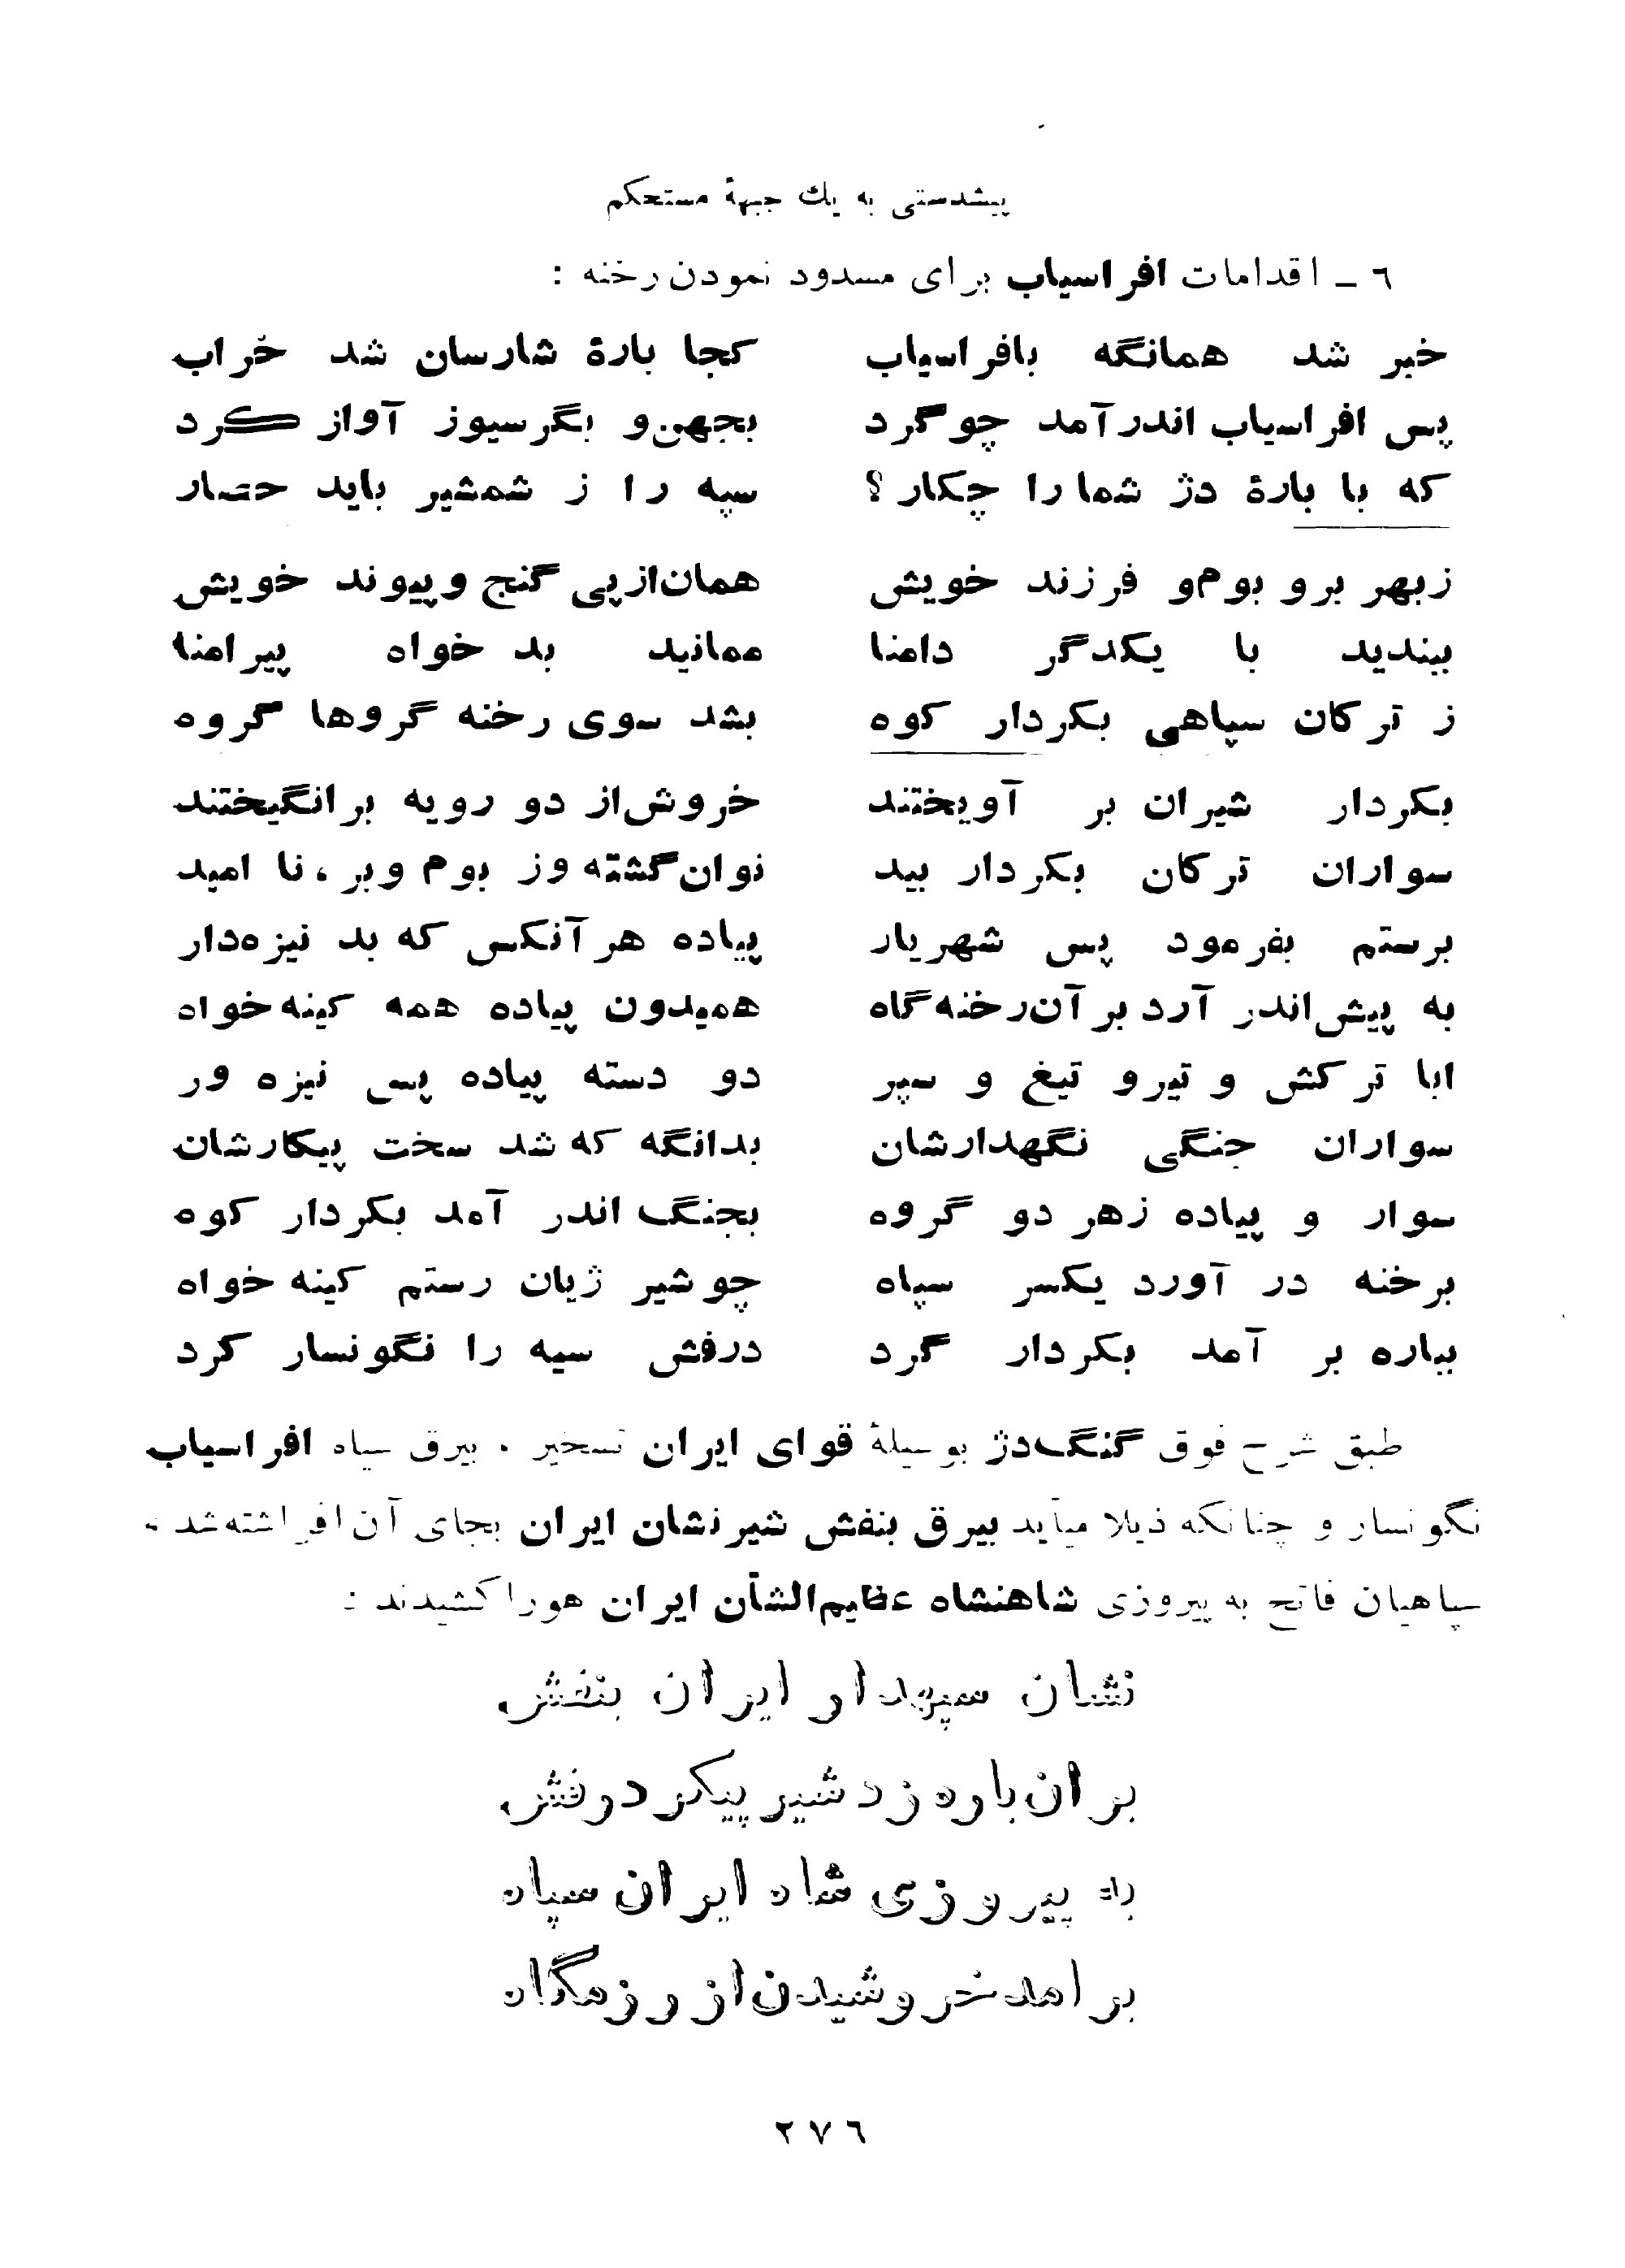 پیشدستی به یك جبههٔ مستحکم
٦ ـ اقدامات افراسیاب برای مسدود نمودن رخنه :
خبر شد همانگه بافراسیاب کجا بارهٔ شارسان شد خراب
پس افراسیاب اندرآمد چو گرد بجهن‌و بگرسیوز آواز کرد
که با بارهٔ دژ شما را چکار ؟ سپه را ز شمشیر باید حصار
زبهر برو بوم‌و فرزند خویش همان‌از پی گنج و پیوند خویش
ببندید با یکدگر دامنا ممانید بد خواه پیرامنا
ز ترکان سپاهی بکردار کوه بشد سوی رخنه گروها گروه
بکردار شیران بر آویختند خروش‌از دو رویه برانگیختند
سواران ترکان بکردار بید نوان‌گشته وز بوم وبر ، نا امید
برستم بفرمود پس شهریار پیاده هرآنکس که بد نیزه‌دار
به پیش‌اندر آرد بر آن‌رخنه‌گاه همیدون پیاده همه کینه‌خواه
ابا ترکش و تیرو تیغ و سپر دو دسته پیاده پس نیزه ور
سواران جنگی نگهدارشان بدانگه که شد سخت پیکارشان
سوار و پیاده زهر دو گروه بجنگ اندر آمد بکردار کوه
برخنه در آورد یکسر سپاه چو شیر ژیان رستم کینه خواه
بباره بر آمد بکردار گرد درفش سیه را نگونسار کرد
طبق شرح فوق گنگ‌دژ بوسیلهٔ قوای ایران تسخیر ، بیرق سیاه افراسیاب
نگونسار و چنانکه ذیلا میآید بیرق بنفش شیرنشان ایران بجای آن‌افراشته‌شد ،
سپاهیان فاتح به پیروزی شاهنشاه عظیم‌الشأن ایران هورا کشیدند :
نشان سپهدار ایران بنفش
بران‌باره زد شیر پیکر درفش
به پیروزی شاه ایران سپاه
برامد خروشیدن از رزمگاه
۲۷٦